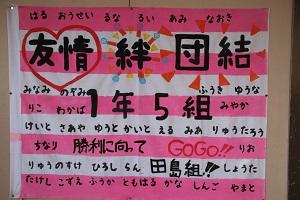 はる おうせい るな るい あみ なおき
友情 絆 団結
みなみ のぞみ ふうき ゆうな
りこ わかば 1年5組 みやか
けいと さあや ゆうと かいと える みあ りゅうたろう
ちなり 勝利に向って GOGO!! りお
りゅうのすけ ひろし らん 田島組!! しょうた
たけし こずえ ふうか ともはる かな しんご やまと